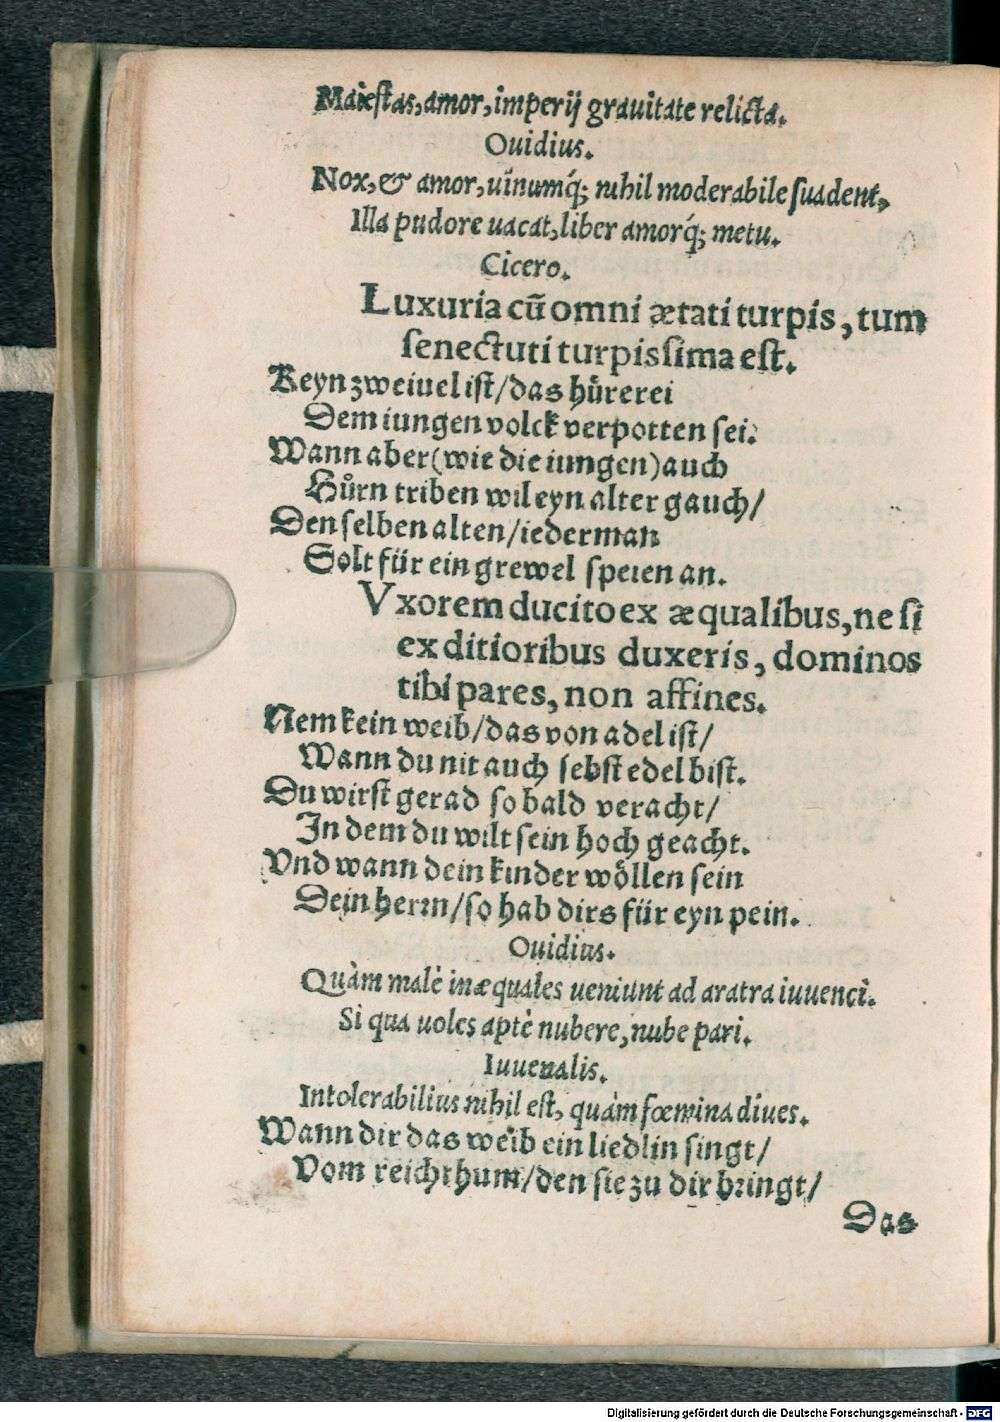 Maiestas, amor, imperij grauitate relicta.
Ouidius.
Nox, & amor, uinumq́; nihil moderabile suadent,
Illa pudore uacat, liber amorq́; metu.
Cicero.
Luxuria cũ omni ætati turpis, tum
senectuti turpissima est.
Keyn zweiuel ist/das hůrerei
Dem iungen volck verpotten sei.
Wann aber (wie die iungen) auch
Hůrn triben wil eyn alter gauch/
Den selben alten/iederman
Solt für ein grewel speien an.
Vxorem ducito ex æqualibus, ne si
ex ditioribus duxeris, dominos
tibi pares, non affines.
Nem kein weib/das von adel ist/
Wann du nit auch sebst edel bist.
Du wirst gerad so bald veracht/
In dem du wilt sein hoch geacht.
Vnd wann dein kinder wöllen sein
Dein herrn/so hab dirs für eyn pein.
Ouidius.
Quàm malè inæquales ueniunt ad aratra iuuenci.
Si qua uoles aptè nubere, nube pari.
Iuuenalis.
Intolerabilius nihil est, quàm fœmina diues.
Wann dir das weib ein liedlin singt/
Vom reichthum/den sie zu dir bringt/
Das
Digitalisierung gefördert durch die Deutsche Forschungsgemeinschaft - DFG